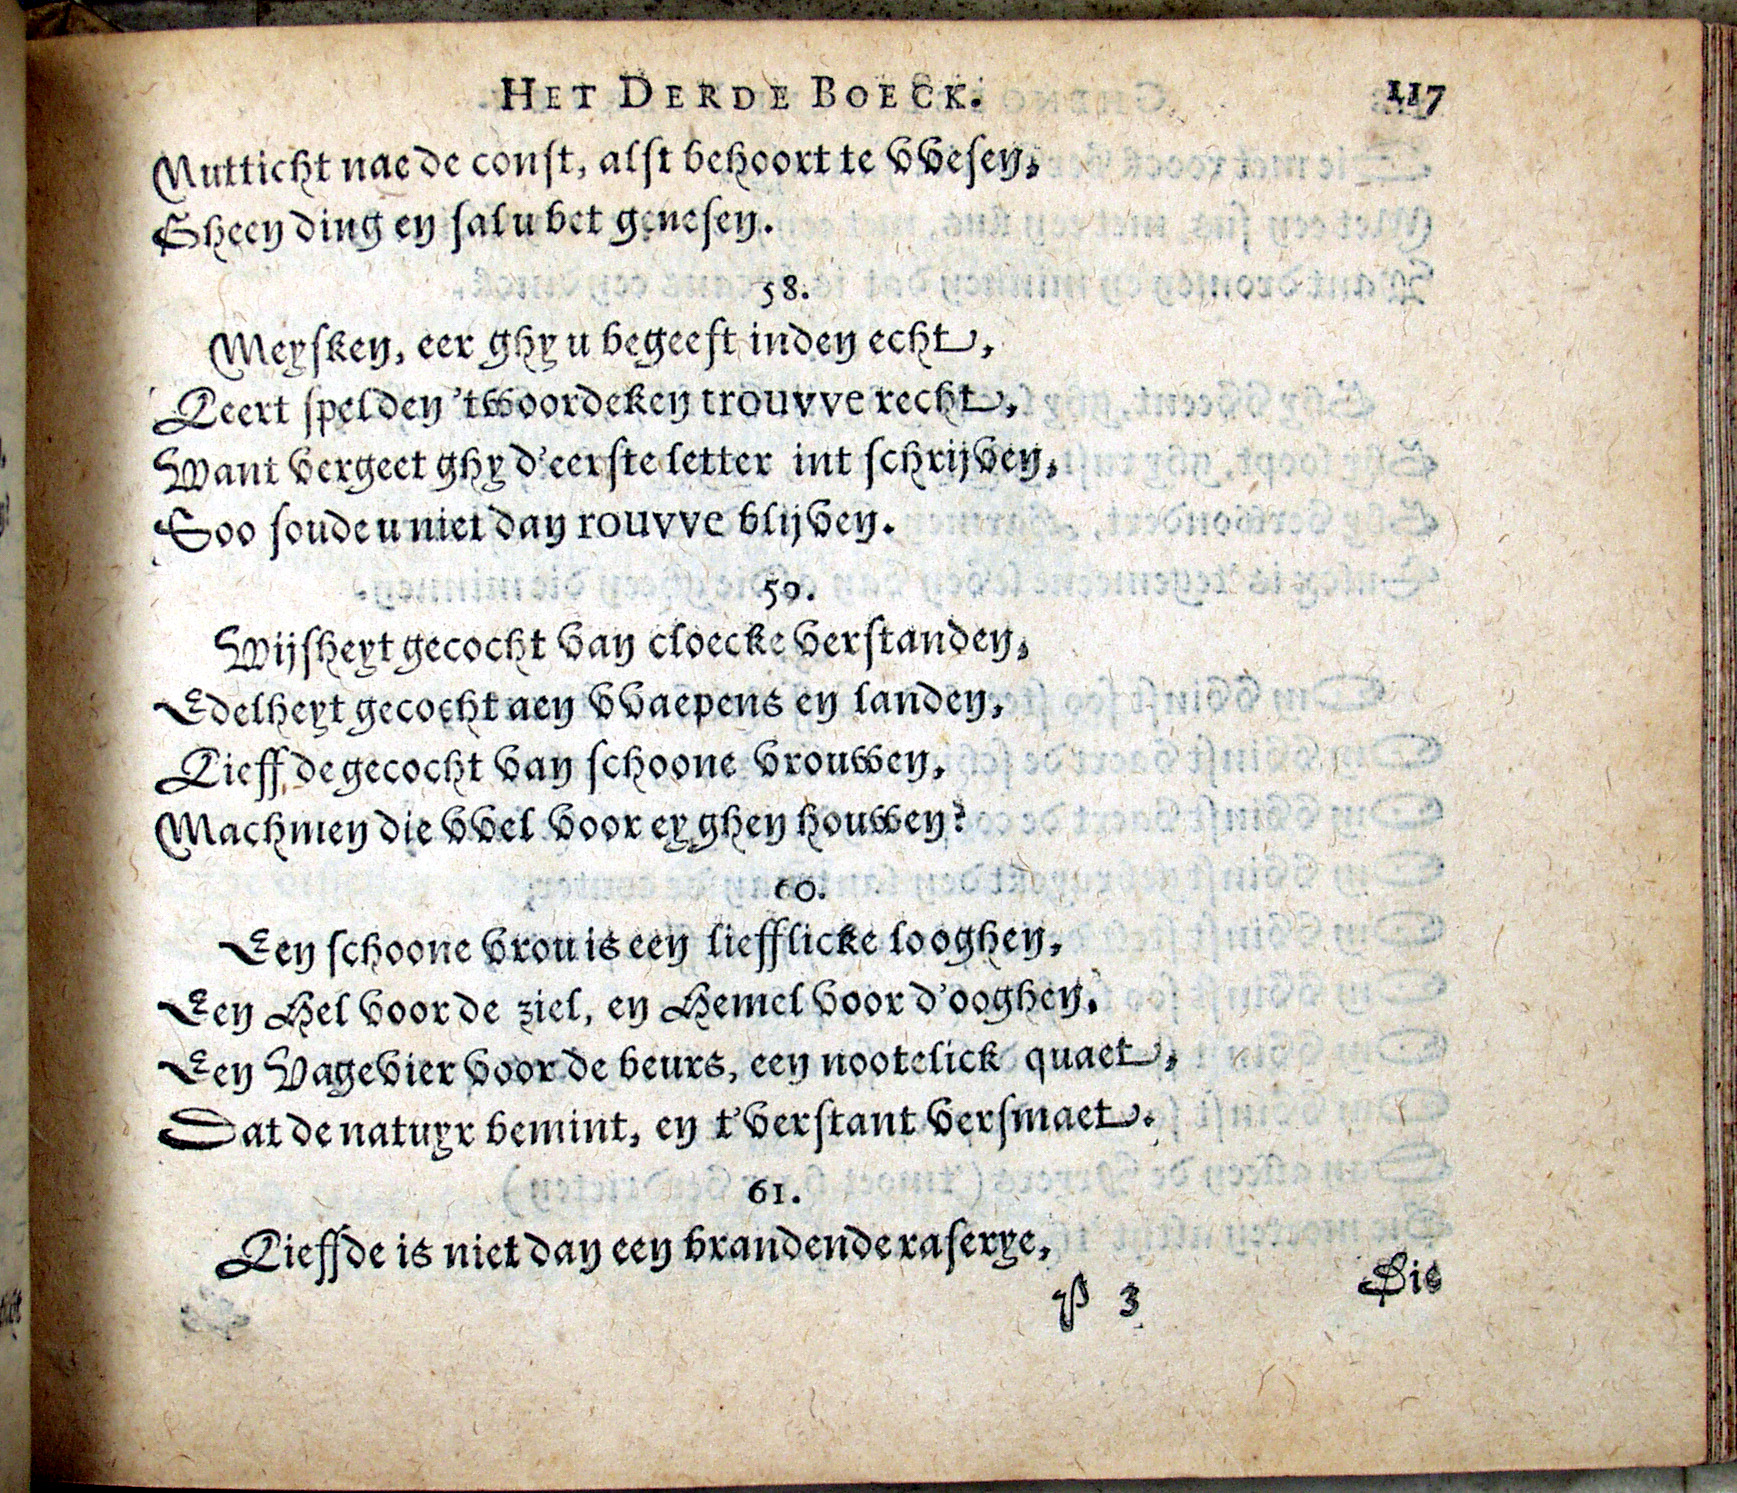 HET DERDE BOECK. 117
Nutticht nae de const, alst behoort te wesen,
Gheen ding en sal u bet genesen.
58.
Meysken, eer ghy u begeeft inden echt,
Leert spelden 'twoordeken trouvve recht,
Want vergeet ghy d'eerste letter int schrijven,
Soo soude u niet dan rouvve blijven.
59.
Wijsheyt gecocht van cloecke verstanden,
Edelheyt gecocht aen wapens en landen,
Lieffde gecocht van schoone vrouwen,
Machmen die wel voor eyghen houwen?
60.
Een schoone vrou is een liefflicke looghen,
Een Hel voor de ziel, en Hemel voor d'ooghen.
Een Vagevier voor de beurs, een nootelick quaet,
Dat de natuyr bemint, en t'verstant versmaet.
61.
Lieffde is niet dan een brandende raserye,
P 3 Die